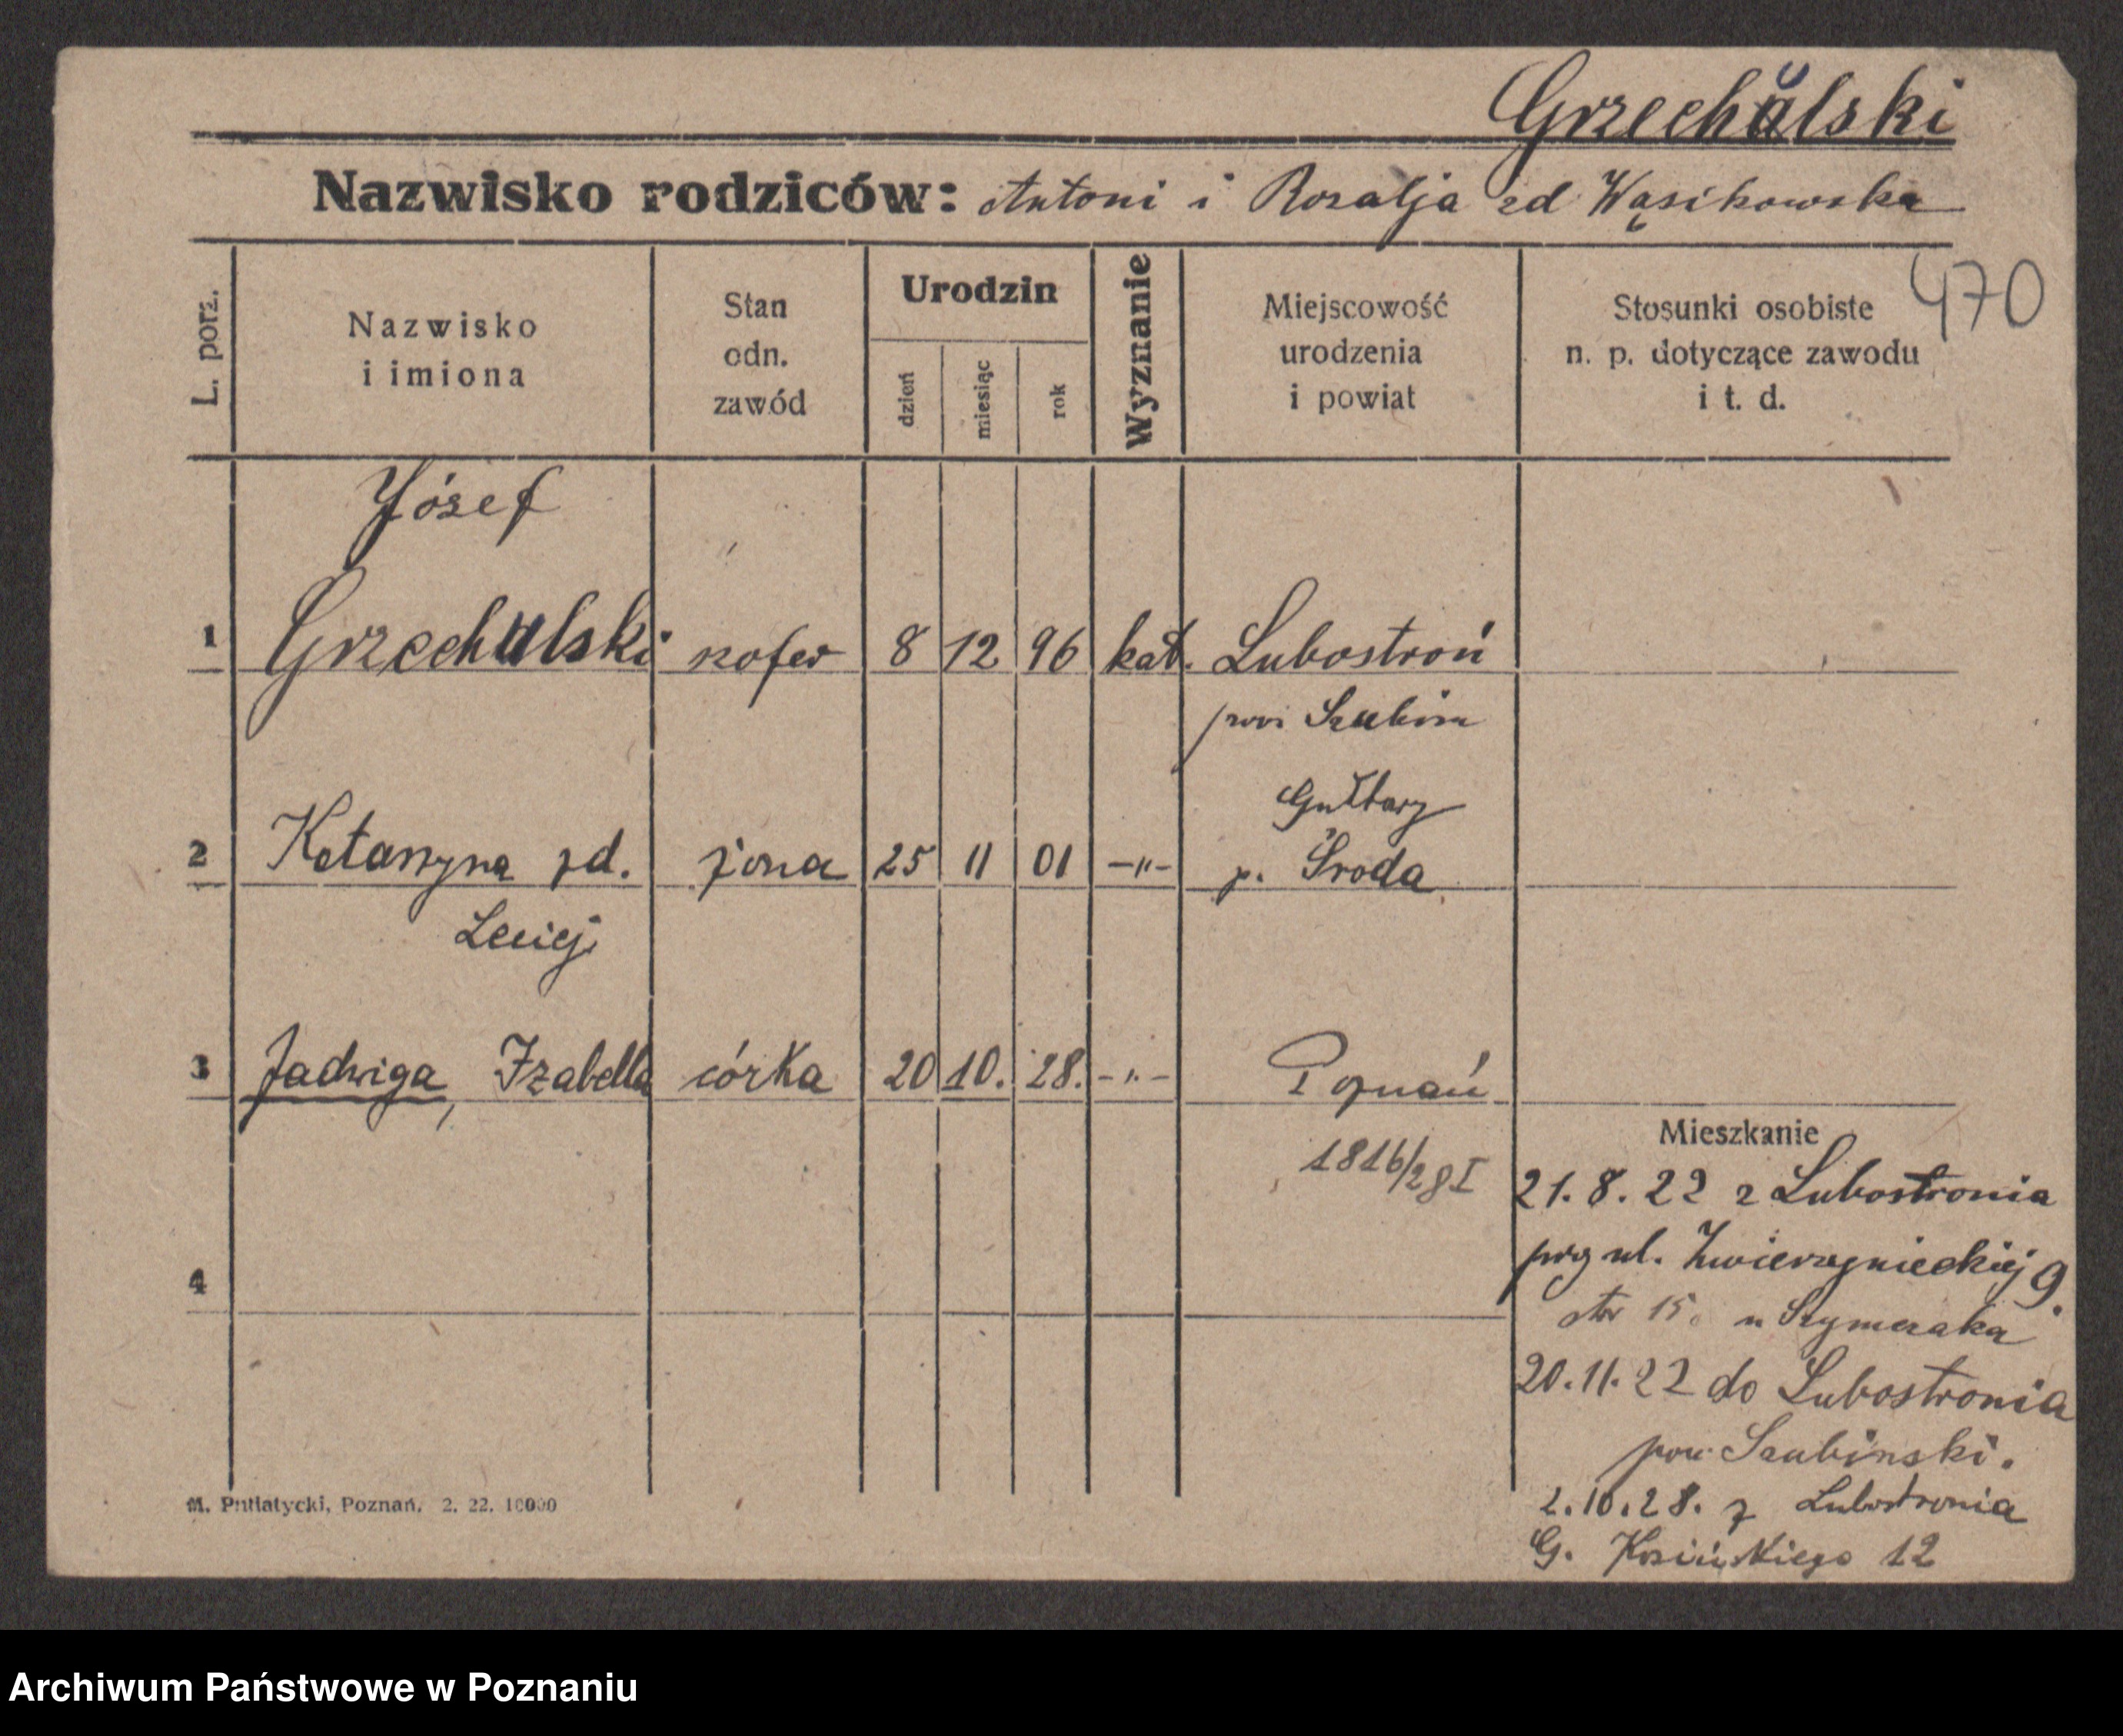 Grzechulski
Nazwisko rodziców: Antoni i Rozalja zd Wąsikowska
470
L. porz.
Nazwisko
i imiona
Stan
odn.
zawód
Urodzin
dzień
miesiąc
rok
Wyznanie
Miejscowość
urodzenia
i powiat
Stosunki osobiste
n. p. dotyczące zawodu
i t. d.
Józef
1 Grzechulski szofer 8 12 96 kat. Lubostroń
pow Szubin
Gułtowy
2 Katarzyna zd. żona 25 11 01 -"- p. Środa
Leciej
3 Jadwiga, Izabella córka 20 10. 28. -"- Poznań
1816/28 I
4
Mieszkanie
21.8.22 z Lubostronia
przy ul. Zwierzynieckiej 9.
15. u Szymczaka
20.11.22 do Lubostronia
pow. Szubinski.
2.10.28. z Lubostronia
G. Kosińskiego 12
M. Putiatycki, Poznań. 2. 22. 10000
Archiwum Państwowe w Poznaniu